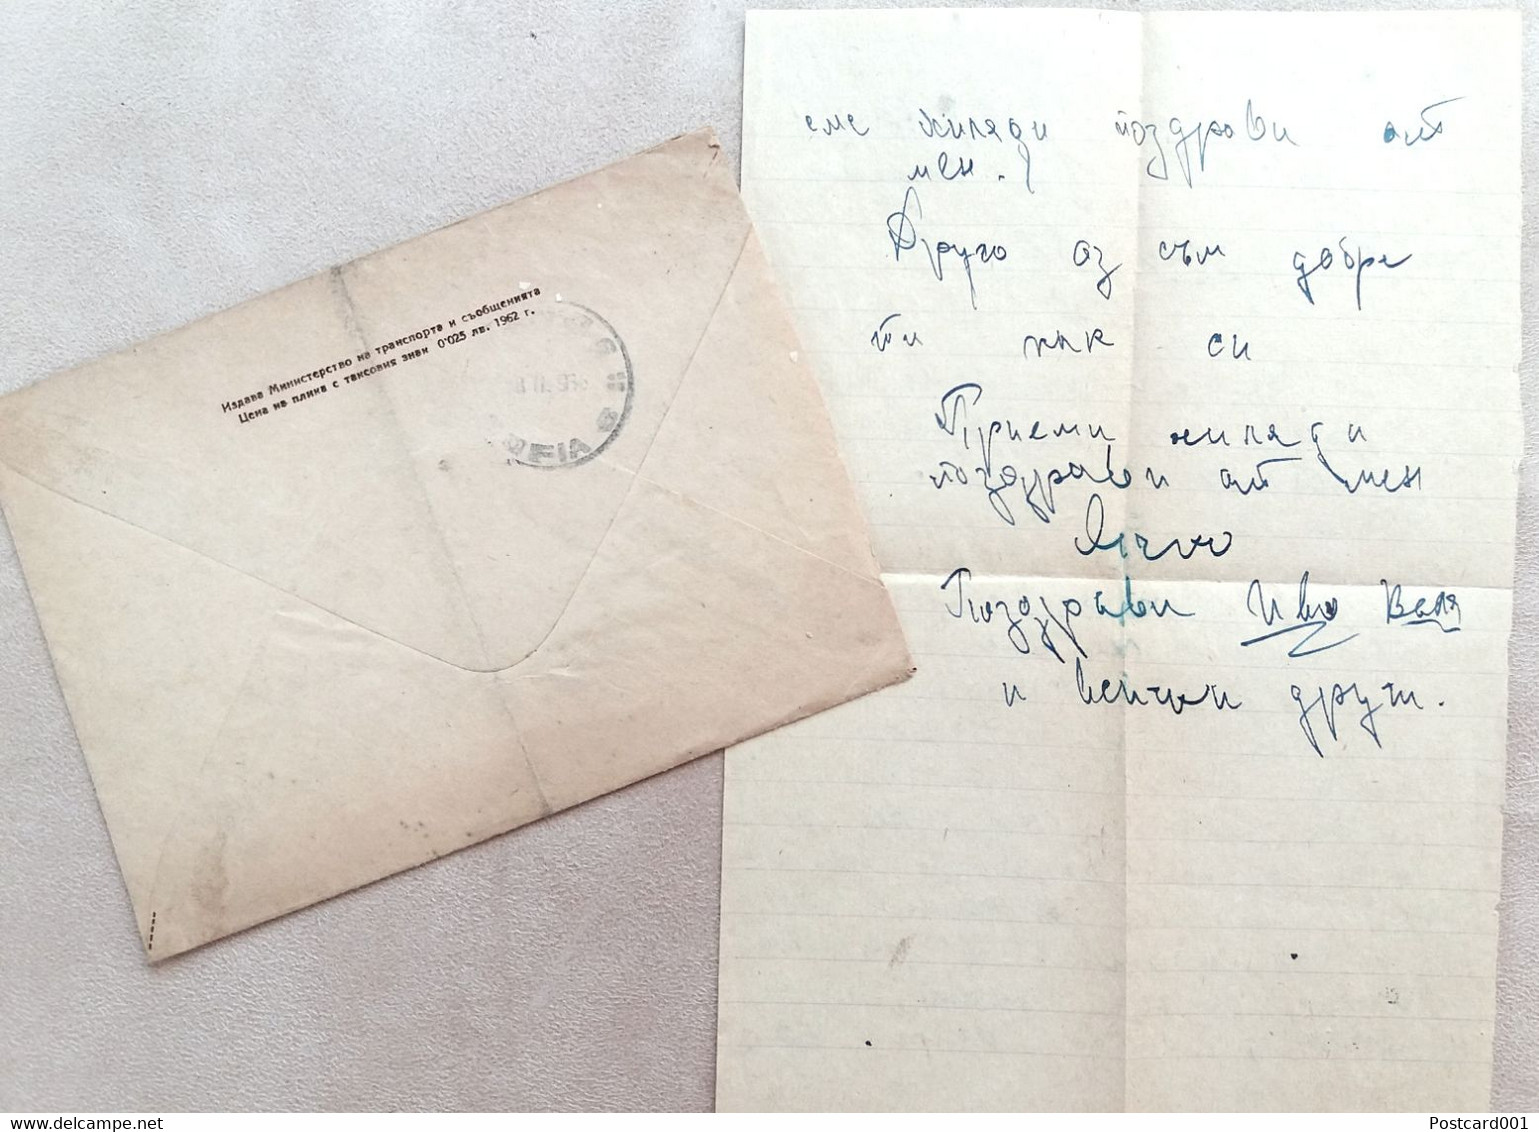 Издава Министерство на транспорта и съобщенията
Цена на плика с таксовия знак 0'025 лв. 1962 г.
SOFIA
еме хиляди поздрави от
мен.
Друго аз съм добре
ти как си
Приеми хиляди
поздрави от мен
Поздрави Иво Валя
и всички други.
Postcard001